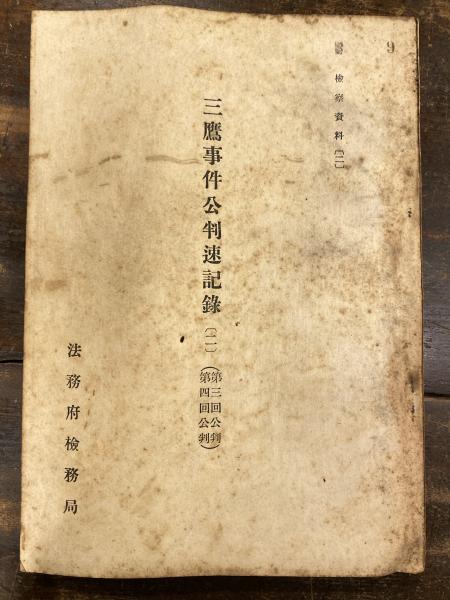 9
檢察資料〔二〕
三鷹事件公判速記錄〔二〕
(第三回公判
第四回公判)
法務府檢務局